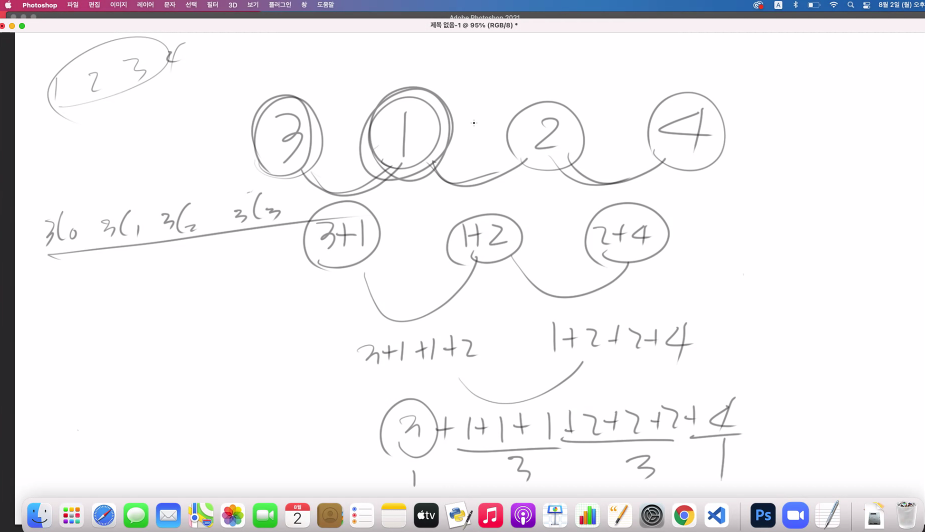 Photoshop 파일 편집 이미지 레이어 문자 선택 필터 3D 보기 플러그인 창 도움말 A 8월 2일 (월) 오후
Adobe Photoshop 2021
제목 없음-1 @ 95% (RGB/8) *
1 2 3 4
3 1 2 4
3C0 3C1 3C2 3C3
3+1 1+2 2+4
3+1+1+2 1+2+2+4
3+1+1+1+2+2+2+4
1 3 3 1
8월 2 tv Ps